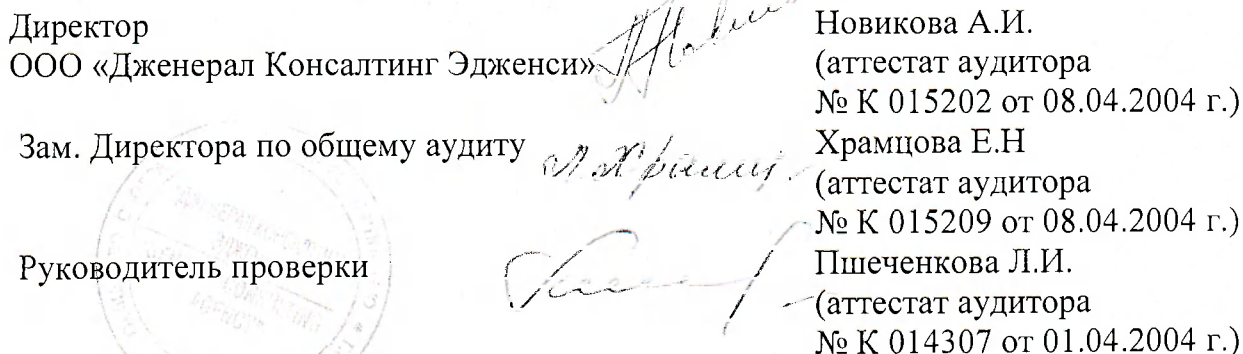 Директор
ООО «Дженерал Консалтинг Эдженси»
Новикова А.И.
(аттестат аудитора
№ К 015202 от 08.04.2004 г.)
Зам. Директора по общему аудиту
Храмцова Е.Н
(аттестат аудитора
№ К 015209 от 08.04.2004 г.)
Руководитель проверки
Пшеченкова Л.И.
(аттестат аудитора
№ К 014307 от 01.04.2004 г.)